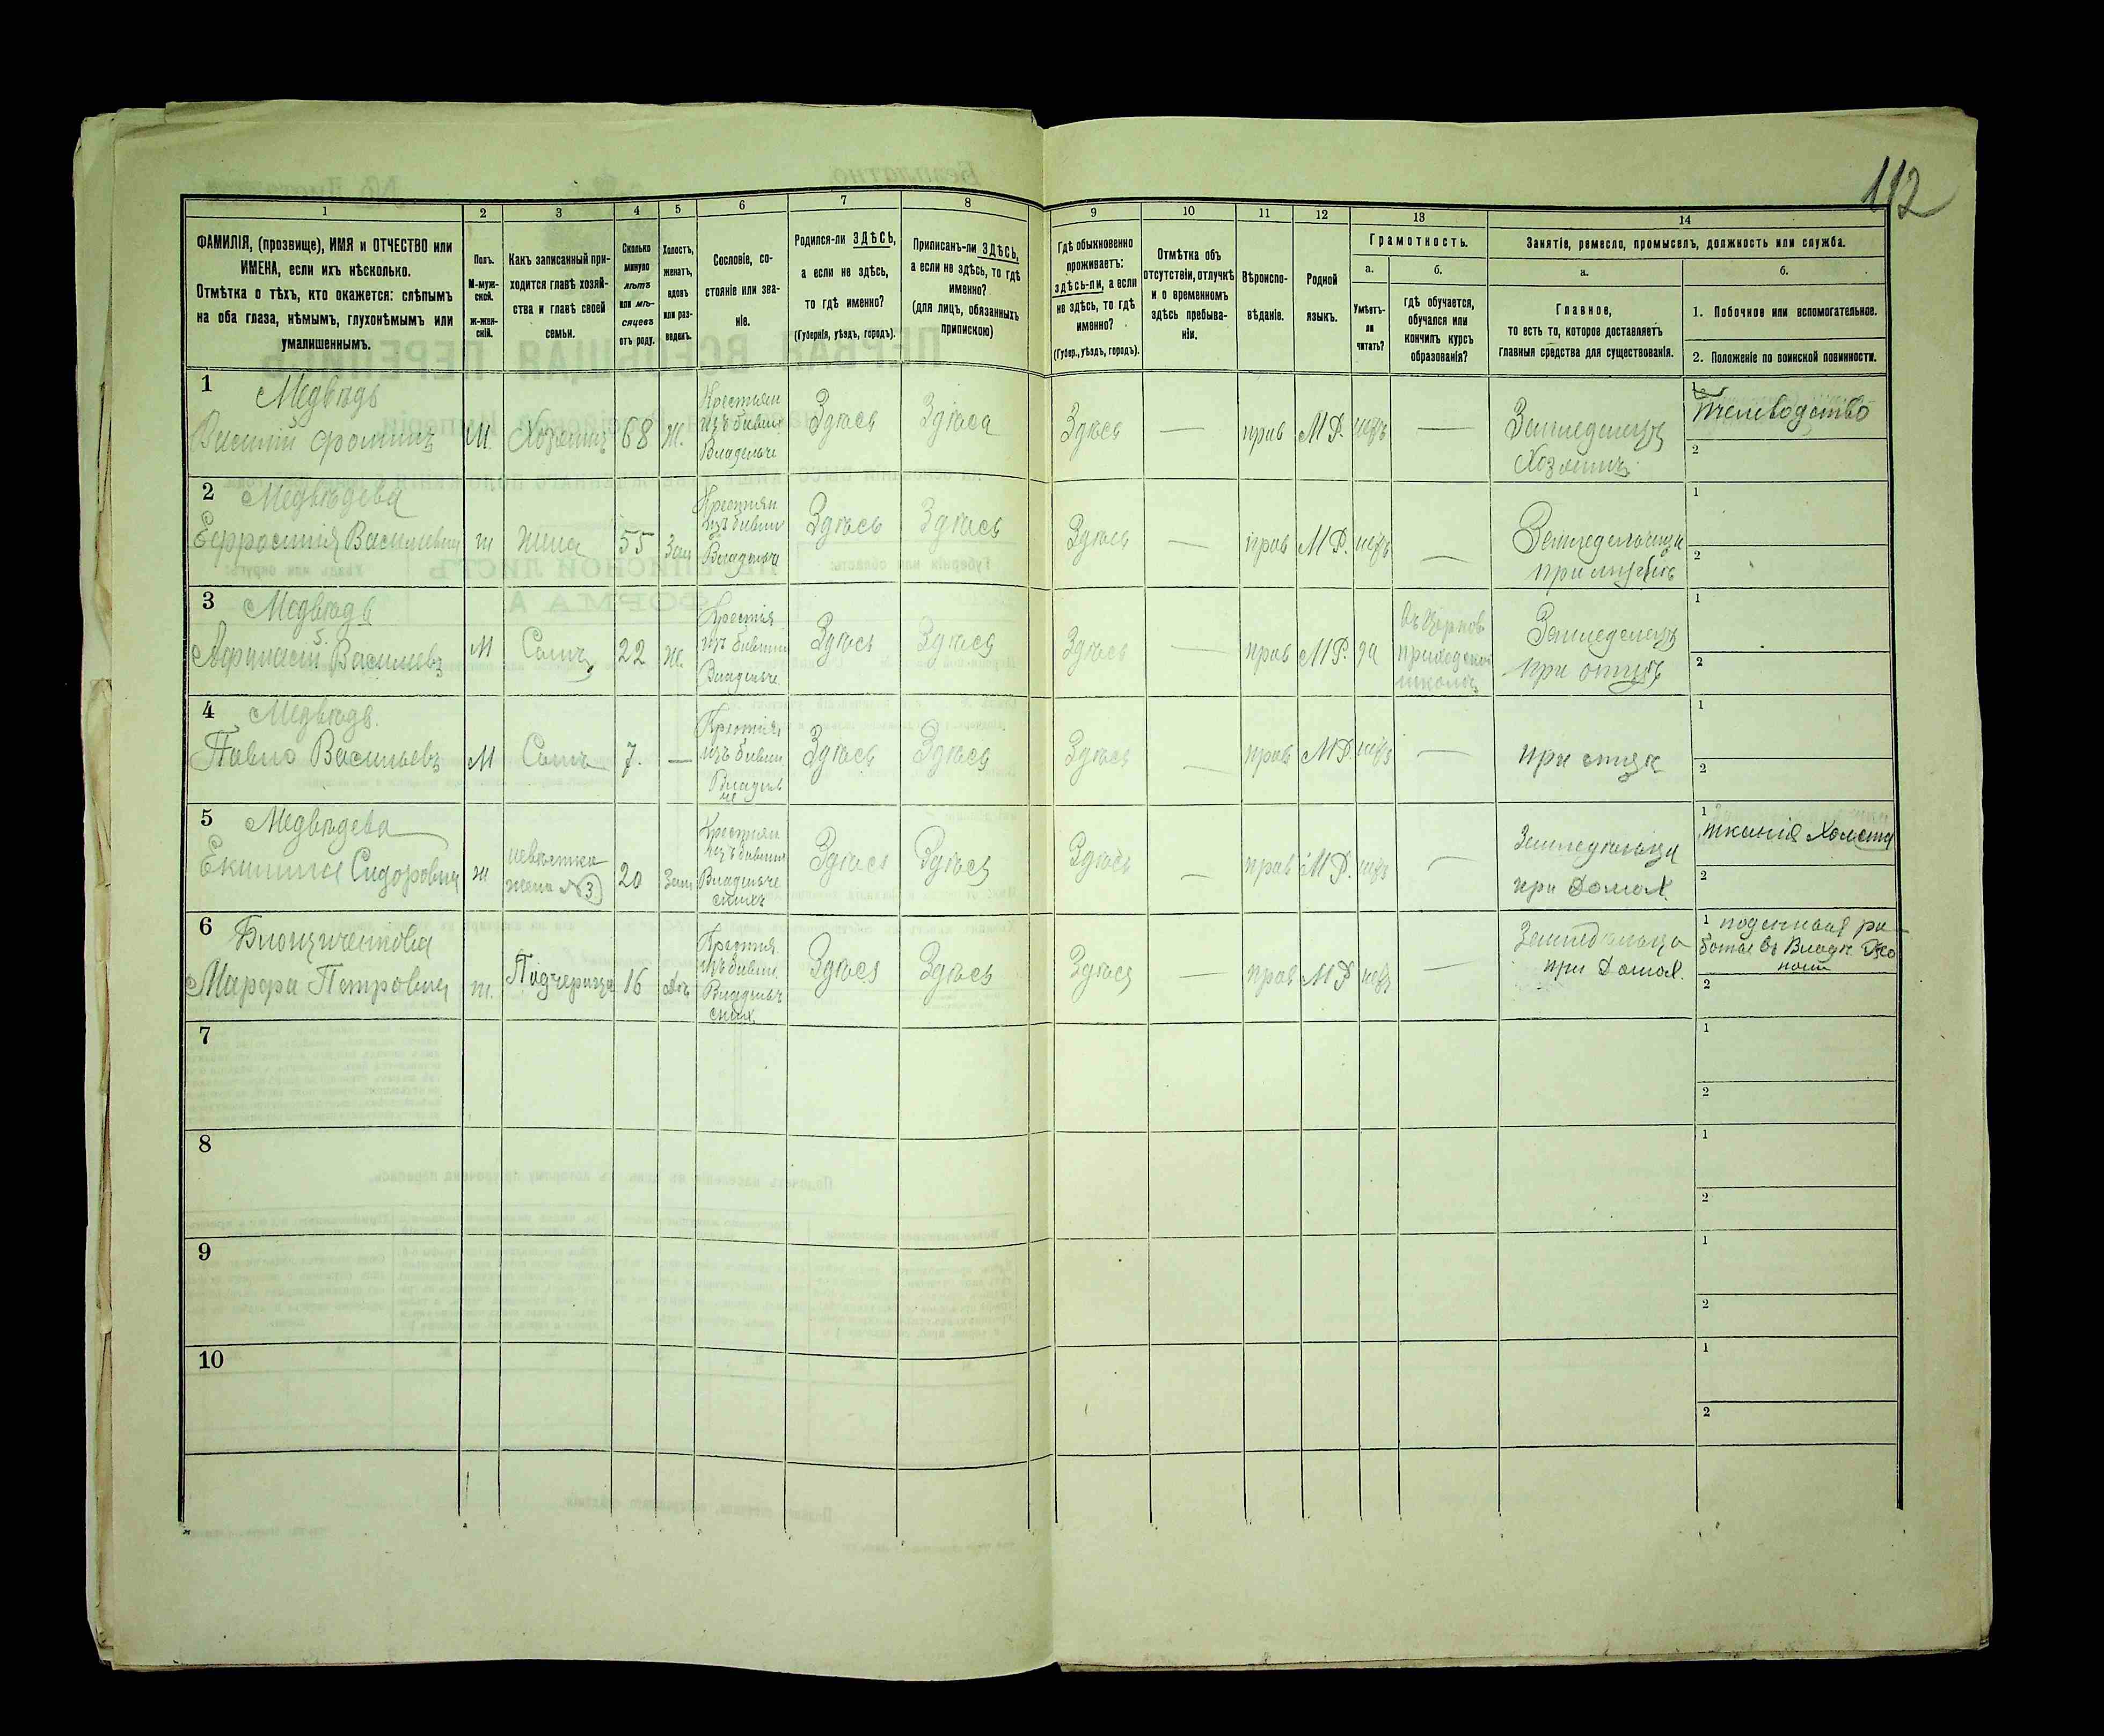 112
1
2
3
4
5
6
7
8
9
10
11
12
13
14
ФАМИЛІЯ, (прозвище), ИМЯ и ОТЧЕСТВО или
ИМЕНА, если ихъ нѣсколько.
Отмѣтка о тѣхъ, кто окажется: слѣпымъ
на оба глаза, нѣмымъ, глухонѣмымъ или
умалишеннымъ.
Полъ.
М-муж-
ской.
ж-жен-
скій.
Какъ записанный при-
ходится главѣ хозяй-
ства и главѣ своей
семьи.
Сколько
минуло
лѣтъ
или мѣ-
сяцевъ
отъ роду.
Холостъ,
женатъ,
вдовъ
или раз-
веденъ.
Сословіе, со-
стояніе или зва-
ніе.
Родился-ли ЗДѢСЬ,
а если не здѣсь,
то гдѣ именно?
(Губернія, уѣздъ, городъ).
Приписанъ-ли ЗДѢСЬ,
а если не здѣсь, то гдѣ
именно?
(для лицъ, обязанныхъ
припискою)
Гдѣ обыкновенно
проживаетъ:
здѣсь-ли, а если
не здѣсь, то гдѣ
именно?
(Губер., уѣздъ, городъ).
Отмѣтка объ
отсутствіи, отлучкѣ
и о временномъ
здѣсь пребыва-
ніи.
Вѣроиспо-
вѣданіе.
Родной
языкъ.
Грамотность.
а.
Умѣетъ-
ли
читать?
б.
гдѣ обучается,
обучался или
кончилъ курсъ
образованія?
Занятіе, ремесло, промыселъ, должность или служба.
а.
Главное,
то есть то, которое доставляетъ
главныя средства для существованія.
б.
1. Побочное или вспомогательное.
2. Положеніе по воинской повинности.
1
Медвѣдь
Василій Фоминъ
М.
Хозяинъ
68
Ж.
Крестьян
изъ бивши
Владельче
Здѣсь
Здѣсь
Здѣсь
—
прав
МР.
нетъ
—
Земледелецъ
Хозяинъ
1
Пчеловодство
2
2
Медвѣдева
Ефросинія Васильевна
ж
жена
55
Зам
Крестьян
изъ бивши
Владельче
Здѣсь
Здѣсь
Здѣсь
прав
МР.
нетъ
—
Земледелица
при мужѣ
1
2
3
Медвѣдь
Афанасій Васильевъ
М
Сынъ
22
Ж.
Крестья
изъ бивши
Владельче
Здѣсь
Здѣсь
Здѣсь
—
прав
МР.
да
въ Церков
приходской
школѣ
Земледелецъ
при отцѣ
1
2
4
Медвѣдь
Павло Васильевъ
М
Сынъ
7.
—
Крестья
изъ бивши
Владель
че
Здѣсь
Здѣсь
Здѣсь
—
прав
МР.
нетъ
—
при отцѣ
1
2
5
Медвѣдева
Екилина Сидоровна
ж
невѣстка
жена №3
20
Зам
Крестьян
изъ бивши
Владельче
скихъ
Здѣсь
Здѣсь
Здѣсь
—
прав
МР.
нетъ
—
Земледѣлица
при Домах.
1
ткания Холста
2
6
Марфа Петровна
ж.
Падчерица
16
Дев
Крестья
изъ бивши
Владельч
ских
Здѣсь
Здѣсь
Здѣсь
—
прав
МР
нетъ
—
Земледѣлица
при Домах.
1 поденная ра
бота въ Владѣ. Эко
номи
2
7
1
2
8
1
2
9
1
2
10
1
2